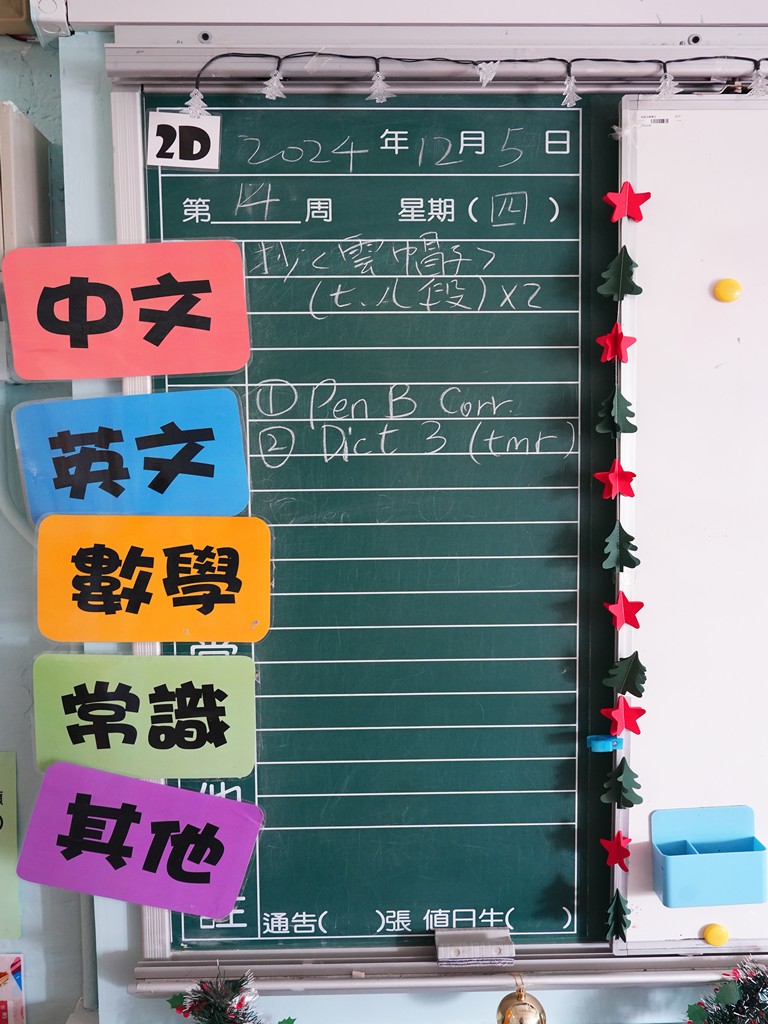 2D
2024年12月5日
第14周 星期(四)
中文
抄<雲帽子>
(七、八段)×2
英文
① Pen B Corr.
② Dict 3 (tmr)
數學
常識
其他
註
通告( )張 值日生( )